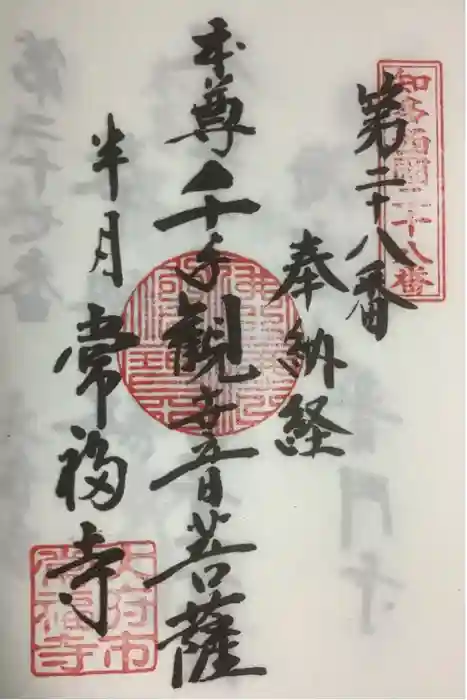 知多西國二十八番
第二十八番
奉納経
本尊千手観世音菩薩
半月常福寺
大府市
常福寺